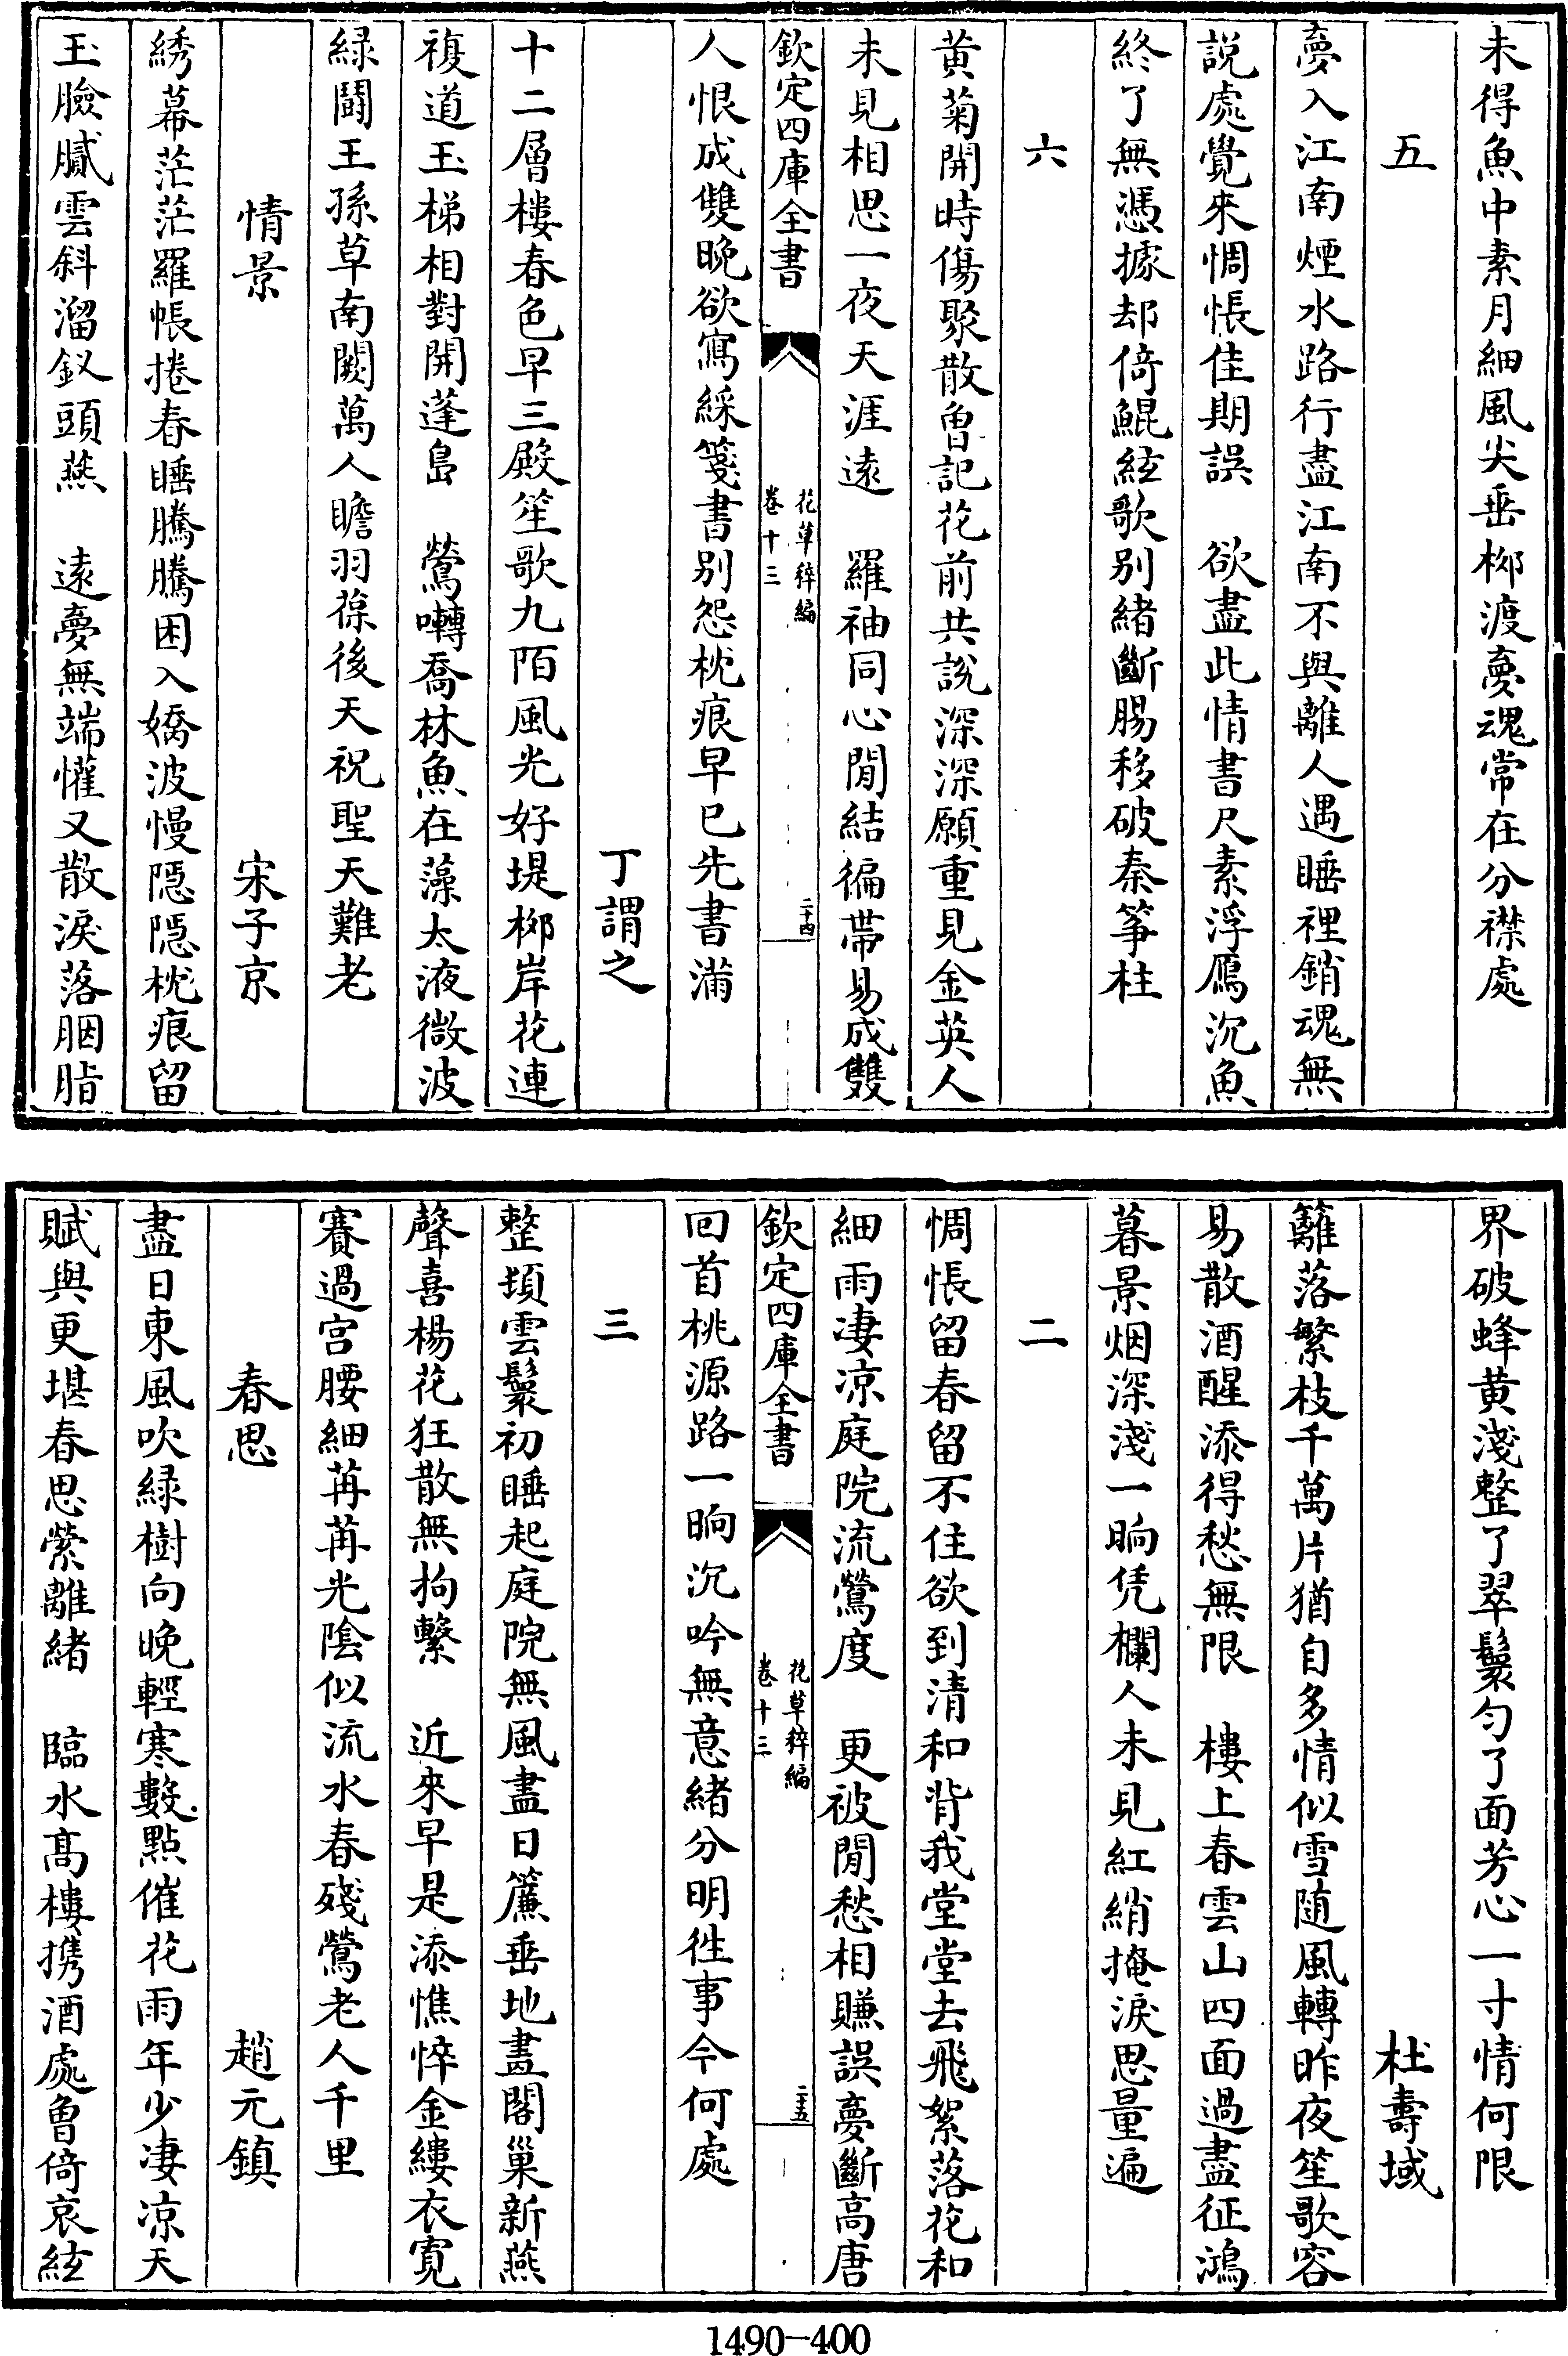 未得魚中素月細風尖垂柳渡夢魂常在分襟處
五
夢入江南煙水路行盡江南不與離人遇睡裡銷魂無
說處覺來惆悵佳期誤　欲盡此情書尺素浮鴈沉魚
終了無憑據却倚鯤絃歌别緒斷腸移破秦筝柱
六
黄菊開時傷聚散曾記花前共說深深願重見金英人
未見相思一夜天涯遠　羅袖同心閒結徧帶易成雙
欽定四庫全書
花草稡編
卷十三
二十四
人恨成雙晚欲寫綵箋書别怨枕痕早已先書滿
丁謂之
十二層樓春色早三殿笙歌九陌風光好堤柳岸花連
複道玉梯相對開蓬島　鶯囀喬林魚在藻太液微波
緑鬬王孫草南闕萬人瞻羽葆後天祝聖天難老
情景　宋子京
綉幕茫茫羅帳捲春睡騰騰困入嬌波慢隠隠枕痕留
玉臉膩雲斜溜釵頭燕　遠夢無端懽又散淚落胭脂
界破蜂黄淺整了翠鬟匀了面芳心一寸情何限
杜壽域
籬落繁枝千萬片猶自多情似雪随風轉昨夜笙歌容
易散酒醒添得愁無限　樓上春雲山四面過盡征鴻
暮景烟深淺一晌凭欄人未見紅綃掩淚思量遍
二
惆悵留春留不住欲到清和背我堂堂去飛絮落花和
細雨凄凉庭院流鶯度　更被閒愁相賺誤夢斷高唐
欽定四庫全書
花草稡編
卷十三
二十五
回首桃源路一晌沉吟無意緒分明徃事今何處
三
整頓雲鬟初睡起庭院無風盡日簾垂地畫閣巢新燕
聲喜楊花狂散無拘繫　近來早是添憔悴金縷衣寛
賽過宫腰細苒苒光陰似流水春殘鶯老人千里
春思　趙元鎮
盡日東風吹緑樹向晚輕寒數點催花雨年少凄凉天
賦與更堪春思縈離緒　臨水髙樓携酒處曾倚哀絃
1490-400